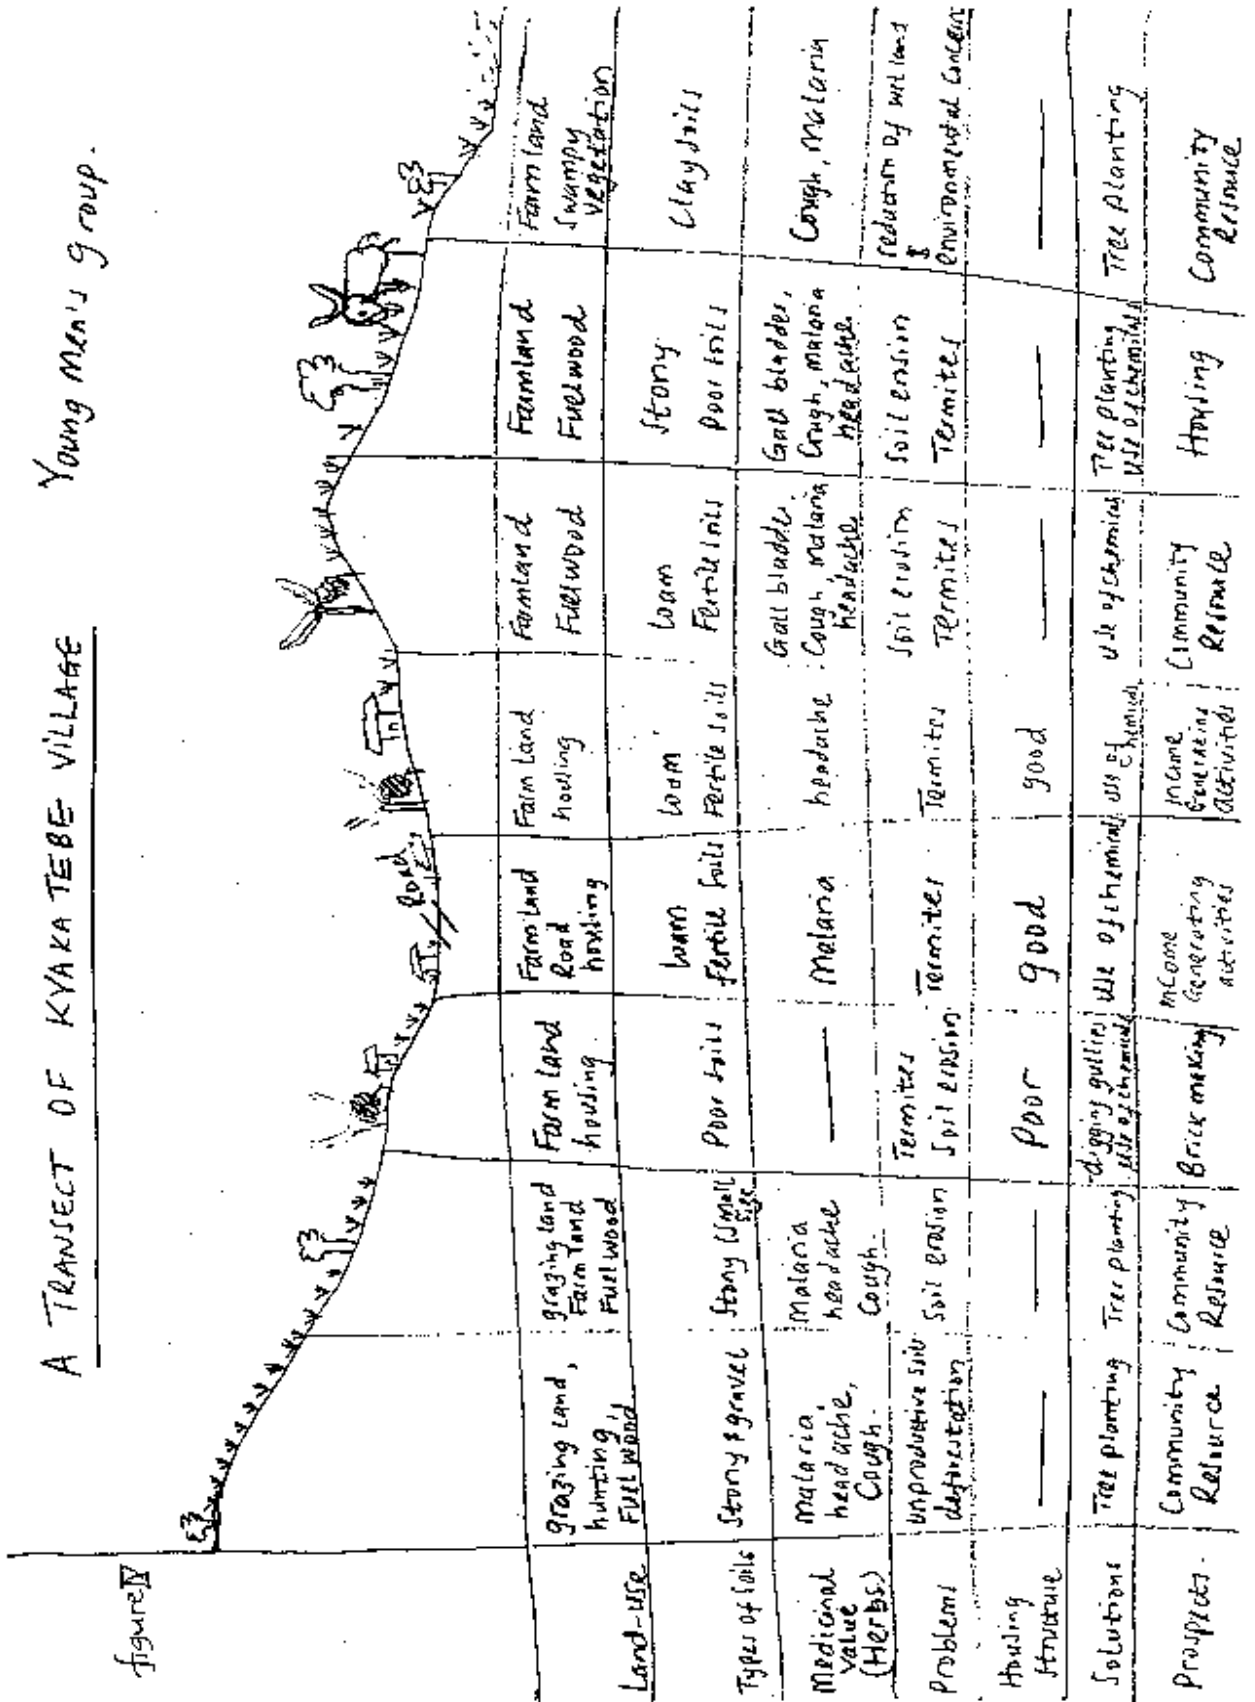 figure IV
A TRANSECT OF KYAKATEBE VILLAGE
Young Men's group.
Road
Land-use
grazing land,
hunting,
Fuel wood
grazing land
Farm land
Fuel wood
Farm land
housing
Farm land
Road
housing
Farm land
housing
Farmland
Fuelwood
Farmland
Fuelwood
Farm land
Swampy
vegetation
Types of soils
Stony & gravel
Stony (small
size
Poor soils
loam
fertile soils
loam
Fertile soils
loam
Fertile soils
Stony
poor soils
Clay soils
Medicinal
value
(Herbs)
malaria
headache,
Cough.
Malaria
headache
Cough.
Malaria
headache
Gall bladder,
Cough, malaria
headache
Gall bladder,
Cough, malaria
headache
Cough, malaria
Problems
unproductive soil
deforestation
Soil erosion
Termites
Soil erosion
Termites
Termites
Soil erosion
Termites
Soil erosion
Termites
reduction of wetland
&
environmental concern
Housing
Structure
Poor
good
good
Solutions
Tree planting
Tree planting
digging gullies
use of chemicals
use of chemicals
use of
chemicals
use of chemicals
Tree planting
use of chemicals
Tree planting
Prospects.
Community
Resource
Community
Resource
Brick making
income
Generating
activities
income
Generating
activities
Community
Resource
Community
Resource